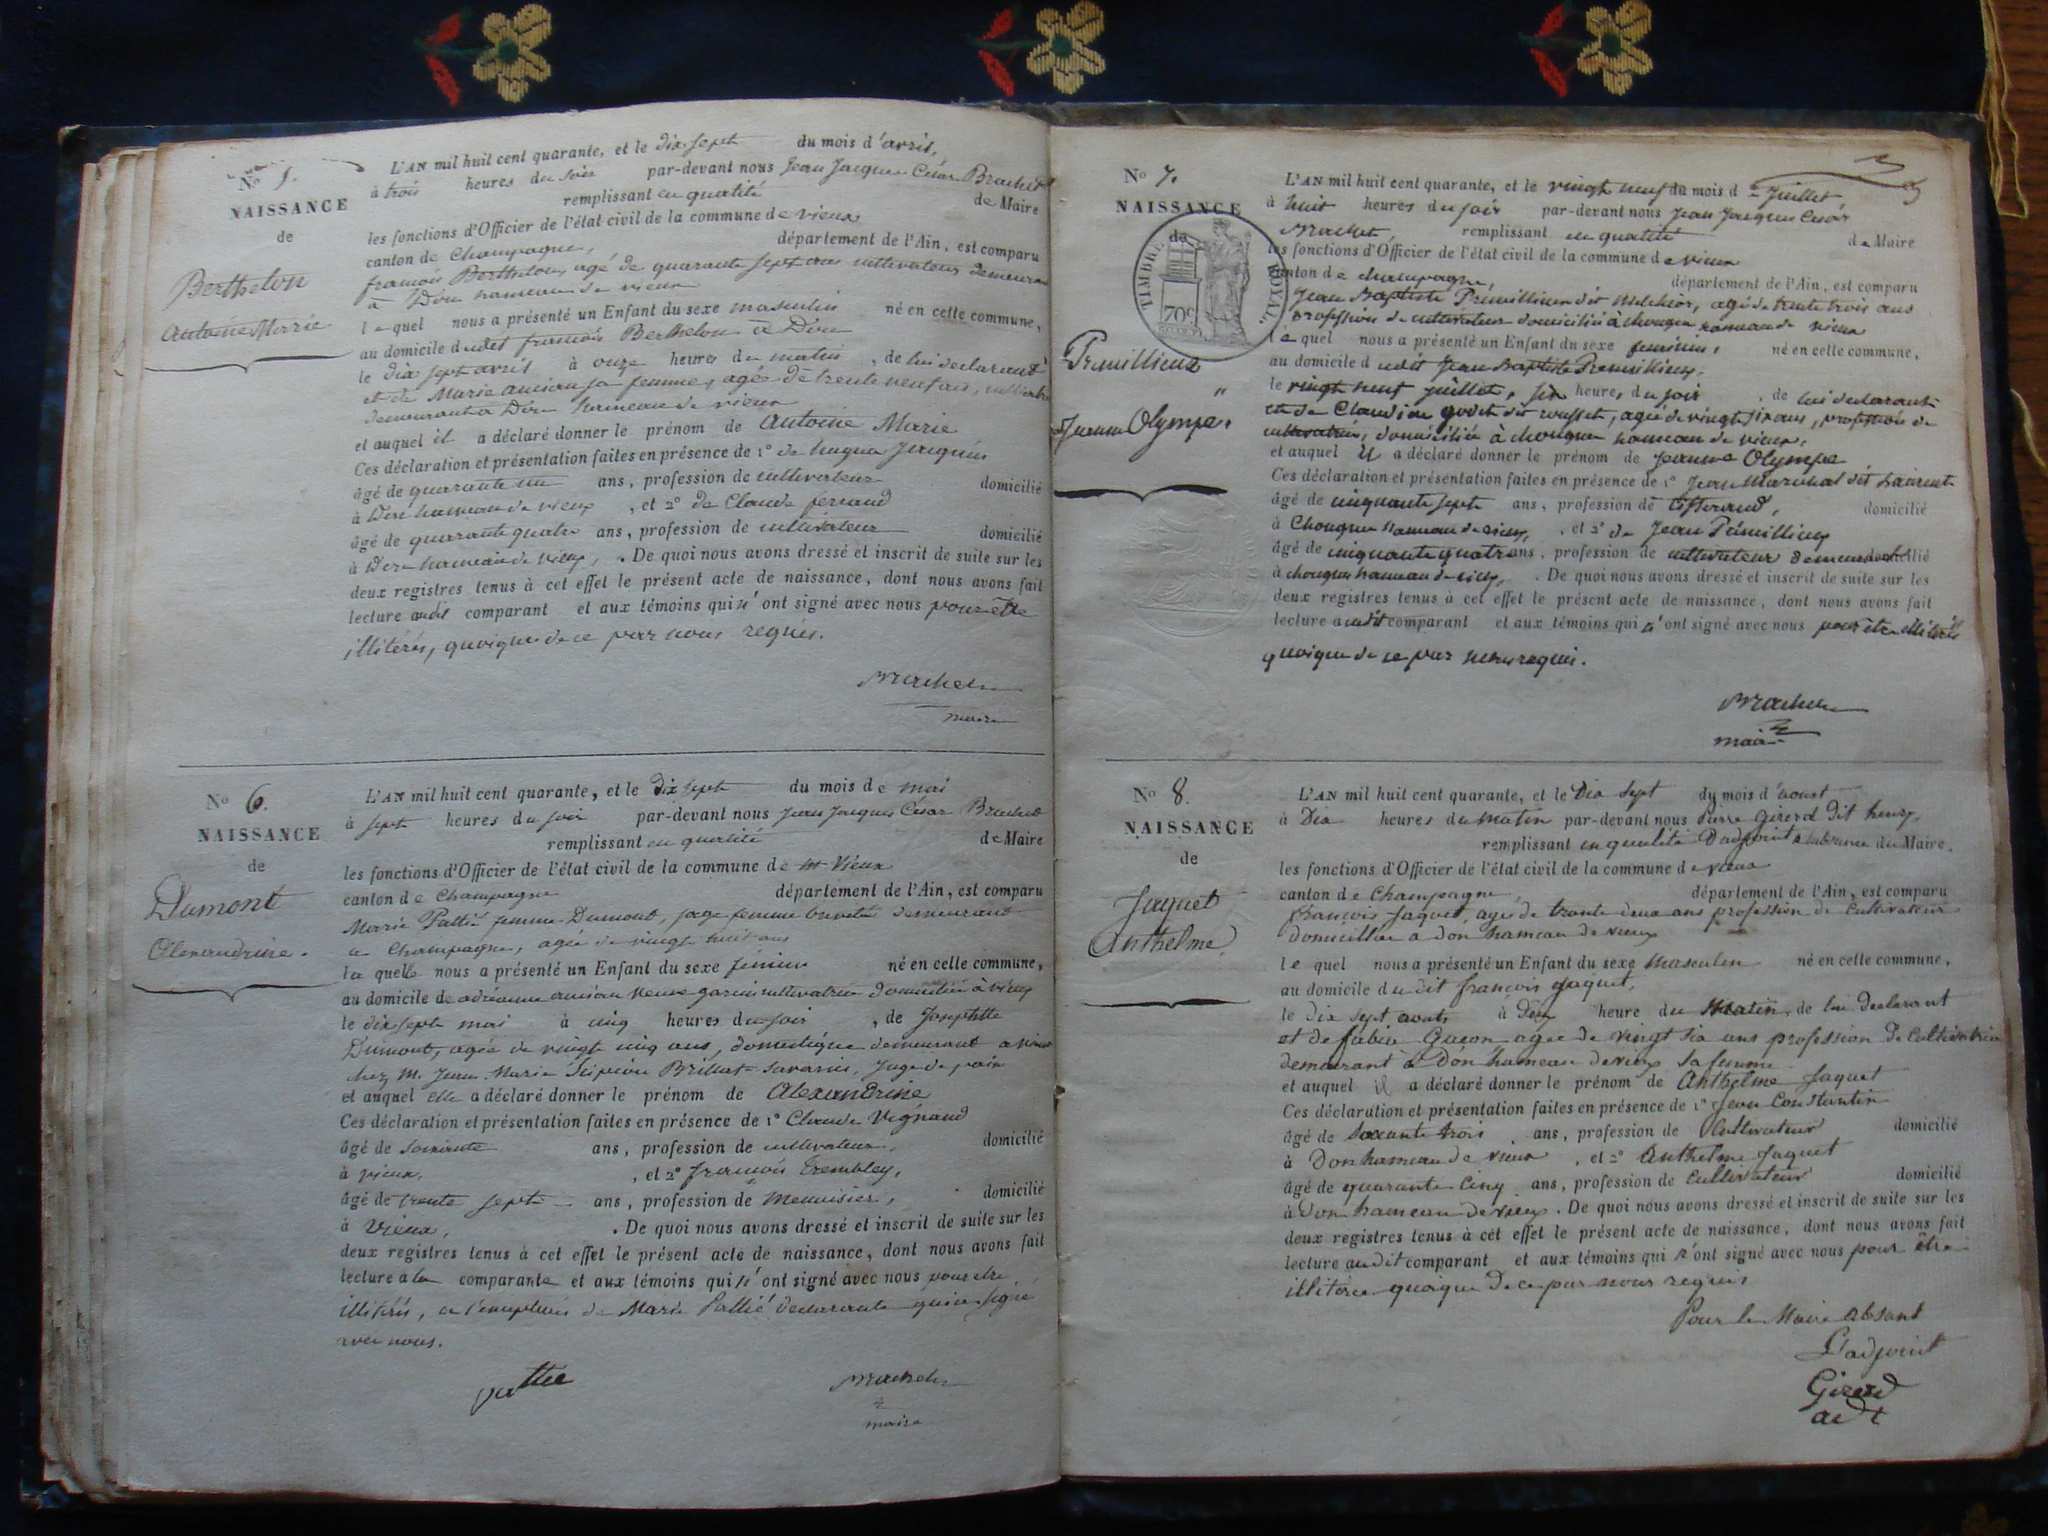 No 5.
NAISSANCE
de
Berthelon
Antoine Marie
L'AN mil huit cent quarante, et le dix sept du mois d'avril,
à trois heures du soir par-devant nous Jean Jacques César Brachet
remplissant en qualité de Maire
les fonctions d'Officier de l'état civil de la commune de vieux
canton de Champagne, département de l'Ain, est comparu
francois Berthelon, agé de quarante sept ans cultivateur demeurant
à Don hameau de vieux
lequel nous a présenté un Enfant du sexe masculin né en cette commune,
au domicile dudit francois Berthelon à Don
le dix sept avril à onze heures du matin, de lui déclarant
et de Marie ancian sa femme, agée de trente neuf ans,
demeurant à Don hameau de vieux
et auquel il a déclaré donner le prénom de Antoine Marie
Ces déclaration et présentation faites en présence de 1º de hugue
âgé de quarante un ans, profession de cultivateur domicilié
à Don hameau de vieux, et 2º de Claude ferrand
âgé de quarante quatre ans, profession de cultivateur domicilié
à Don hameau de vieux, . De quoi nous avons dressé et inscrit de suite sur les
deux registres tenus à cet effet le présent acte de naissance, dont nous avons fait
lecture audit comparant et aux témoins qui n'ont signé avec nous pour être
illitérés, quoique de ce par nous requis.
Brachet
maire
No 6.
NAISSANCE
de
Dumont
Alexandrine.
L'AN mil huit cent quarante, et le dix sept du mois de mai
à sept heures du soir par-devant nous Jean Jacques César Brachet
remplissant en qualité de Maire
les fonctions d'Officier de l'état civil de la commune de Vieux
canton de Champagne département de l'Ain, est comparu
Marie Pallié femme Dumont, sage femme brevetée demeurant
a Champagne, agée de vingt huit ans
la quelle nous a présenté un Enfant du sexe féminin né en cette commune,
au domicile de adrienne ancian veuve garin cultivatrice domiciliée à vieux
le dix sept mai à cinq heures du soir, de Josephtte
Dumont, agée de vingt cinq ans, domestique demeurant a vieux
chez M. Jean Marie Scipion Brillat-Savarin, Juge de paix
et auquel elle a déclaré donner le prénom de Alexandrine
Ces déclaration et présentation faites en présence de 1º Claude Vignand
âgé de soixante ans, profession de cultivateur, domicilié
à vieux, , et 2º francois Trembley,
âgé de trente sept ans, profession de Menuisier, domicilié
à Vieux, . De quoi nous avons dressé et inscrit de suite sur les
deux registres tenus à cet effet le présent acte de naissance, dont nous avons fait
lecture a la comparante et aux témoins qui n'ont signé avec nous pour etre
illitérés, a l'exeption de Marie Pallié declarante qui a signé
avec nous.
Brachet
maire
No 7.
NAISSANCE
de
TIMBRE ROYAL
70c
Premillieux
Jeanne Olympe.
L'AN mil huit cent quarante, et le vingt neuf du mois de Juillet
à huit heures du soir par-devant nous Jean Jacques César
Brachet, remplissant en qualité de Maire
les fonctions d'Officier de l'état civil de la commune de vieux
canton de champagne, département de l'Ain, est comparu
Jean Baptiste Premillieux dit Melchior, agé de trente trois ans
profession de cultivateur domicilié à chongnes hameau de vieux
le quel nous a présenté un Enfant du sexe feminin, né en cette commune,
au domicile dudit Jean Baptiste Premillieux,
le vingt neuf juillet, six heures du soir, de lui declarant
et de Claudine godet dit rousset, agée de vingt six ans, profession de
cultivatrice, domiciliée à chongnes hameau de vieux,
et auquel il a déclaré donner le prénom de Jeanne Olympe
Ces déclaration et présentation faites en présence de 1º Jean Maréchal dit Laurent
âgé de cinquante sept ans, profession de tisserand, domicilié
à Chongnes hameau de vieux, , et 2º de Jean Prémillieux
âgé de cinquante quatre ans, profession de cultivateur domicilié
à chongnes hameau de vieux, . De quoi nous avons dressé et inscrit de suite sur les
deux registres tenus à cet effet le présent acte de naissance, dont nous avons fait
lecture audit comparant et aux témoins qui n'ont signé avec nous pour être illitérés
quoique de ce par nous requis.
Brachet
maire
No 8.
NAISSANCE
de
Jaquet
Anthelme
L'AN mil huit cent quarante, et le Dix Sept du mois d'aoust
à Dix heures du matin par-devant nous Pierre Girerd Dit henry,
remplissant en qualité Dadjoint a labsance du Maire.
les fonctions d'Officier de l'état civil de la commune de vieux
canton de Champagne, département de l'Ain, est comparu
François Jaquet, agé de trante deux ans profession de Cultivateur
domicillier a don hameau de vieux
le quel nous a présenté un Enfant du sexe Masculin né en cette commune,
au domicile du dit françois Jaquet,
le dix Sept avout à Deux heure du Matin, de lui declarant
et de fabien Guson agee de vingt six ans profession de Cultivatrice
demeurant à Don hameau de vieux Sa famme
et auquel il a déclaré donner le prénom de Anthelme Jaquet
Ces déclaration et présentation faites en présence de 1º Jean Constantin
âgé de Soixante trois ans, profession de Cultivateur domicilié
à Don hameau de vieux , et 2º Anthelme Jaquet
âgé de quarante Cinq ans, profession de Cultivateur domicilié
à Don hameau de vieux. De quoi nous avons dressé et inscrit de suite sur les
deux registres tenus à cet effet le présent acte de naissance, dont nous avons fait
lecture audit comparant et aux témoins qui n'ont signé avec nous pour être
illitéré quoique De ce par nous requis
Pour le Maire absant
L'adjoint
Girerd
adt